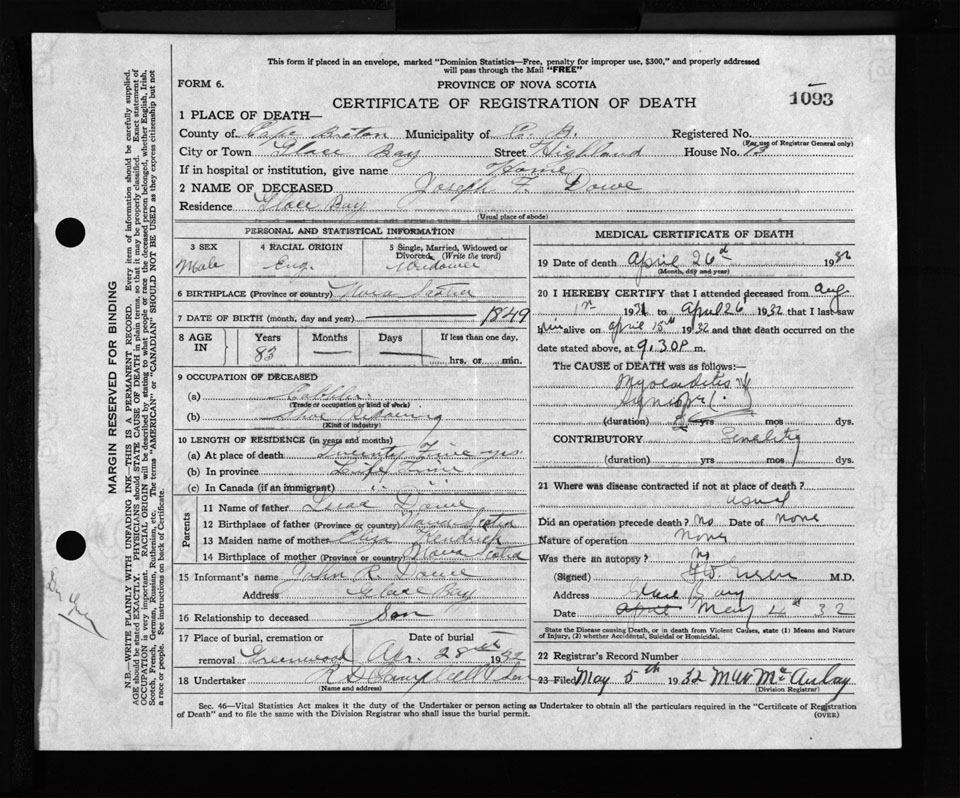 This form if placed in an envelope, marked "Dominion Statistics—Free, penalty for improper use, $300," and properly addressed
will pass through the Mail "FREE"
FORM 6.
PROVINCE OF NOVA SCOTIA
CERTIFICATE OF REGISTRATION OF DEATH
1093
1 PLACE OF DEATH—
County of Cape Breton Municipality of C. B. Registered No.
(For use of Registrar General only)
City or Town Glace Bay Street Highland House No.
If in hospital or institution, give name Home
2 NAME OF DECEASED Joseph F. Dowe
Residence Glace Bay
(Usual place of abode)
PERSONAL AND STATISTICAL INFORMATION
3 SEX
Male
4 RACIAL ORIGIN
Eng.
5 Single, Married, Widowed or
Divorced. (Write the word)
Widower
6 BIRTHPLACE (Province or country) Nova Scotia
7 DATE OF BIRTH (month, day and year) 1849
8 AGE
IN
Years
83
Months
—
Days
—
If less than one day,
hrs. or min.
9 OCCUPATION OF DECEASED
(a) Cobbler
(Trade or occupation or kind of work)
(b) Shoe Repairing
(Kind of industry)
10 LENGTH OF RESIDENCE (in years and months)
(a) At place of death Twenty Five yrs
(b) In province Life Time
(c) In Canada (if an immigrant) " "
Parents
11 Name of father Isaac Dowe
12 Birthplace of father (Province or country) Nova Scotia
13 Maiden name of mother Kendrick
14 Birthplace of mother (Province or country) Nova Scotia
15 Informant's name John R. Dowe
Address Glace Bay
16 Relationship to deceased Son
17 Place of burial, cremation or
removal Greenwood
Date of burial
Apr. 28 1932
18 Undertaker Campbell
(Name and address)
MEDICAL CERTIFICATE OF DEATH
19 Date of death April 26 1932
(Month, day and year)
20 I HEREBY CERTIFY that I attended deceased from Aug
1931 to April 26 1932 that I last saw
him alive on April 15th 1932 and that death occurred on
date stated above, at 9.30 P. m.
The CAUSE of DEATH was as follows:—
Myocarditis
(duration) yrs mos dys.
CONTRIBUTORY Senility
(duration) yrs mos dys.
21 Where was disease contracted if not at place of death?
usual
Did an operation precede death? no Date of none
Nature of operation none
Was there an autopsy? no
(Signed) M.D.
Address Glace Bay
Date April May 4th 32
State the Disease causing Death, or in death from Violent Causes, state (1) Means and Nature
of Injury, (2) whether Accidental, Suicidal or Homicidal.
22 Registrar's Record Number
23 Filed May 5th 1932 McAulay
(Division Registrar)
Sec. 46—Vital Statistics Act makes it the duty of the Undertaker or person acting as Undertaker to obtain all the particulars required in the "Certificate of Registration
of Death" and to file the same with the Division Registrar who shall issue the burial permit.
(OVER)
MARGIN RESERVED FOR BINDING
N.B.—WRITE PLAINLY WITH UNFADING INK—THIS IS A PERMANENT RECORD. Every item of information should be carefully supplied.
AGE should be stated EXACTLY. PHYSICIANS should STATE CAUSE OF DEATH in plain terms, so that it may be properly classified. Exact statement of
OCCUPATION is very important. RACIAL ORIGIN will be described by stating to what people or race the deceased person belonged, whether English, Irish,
Scotch, French, German, Russian, Ruthenian, etc. The terms "AMERICAN" or "CANADIAN" SHOULD NOT BE USED as they express citizenship but not
a race or people. See instructions on back of Certificate.